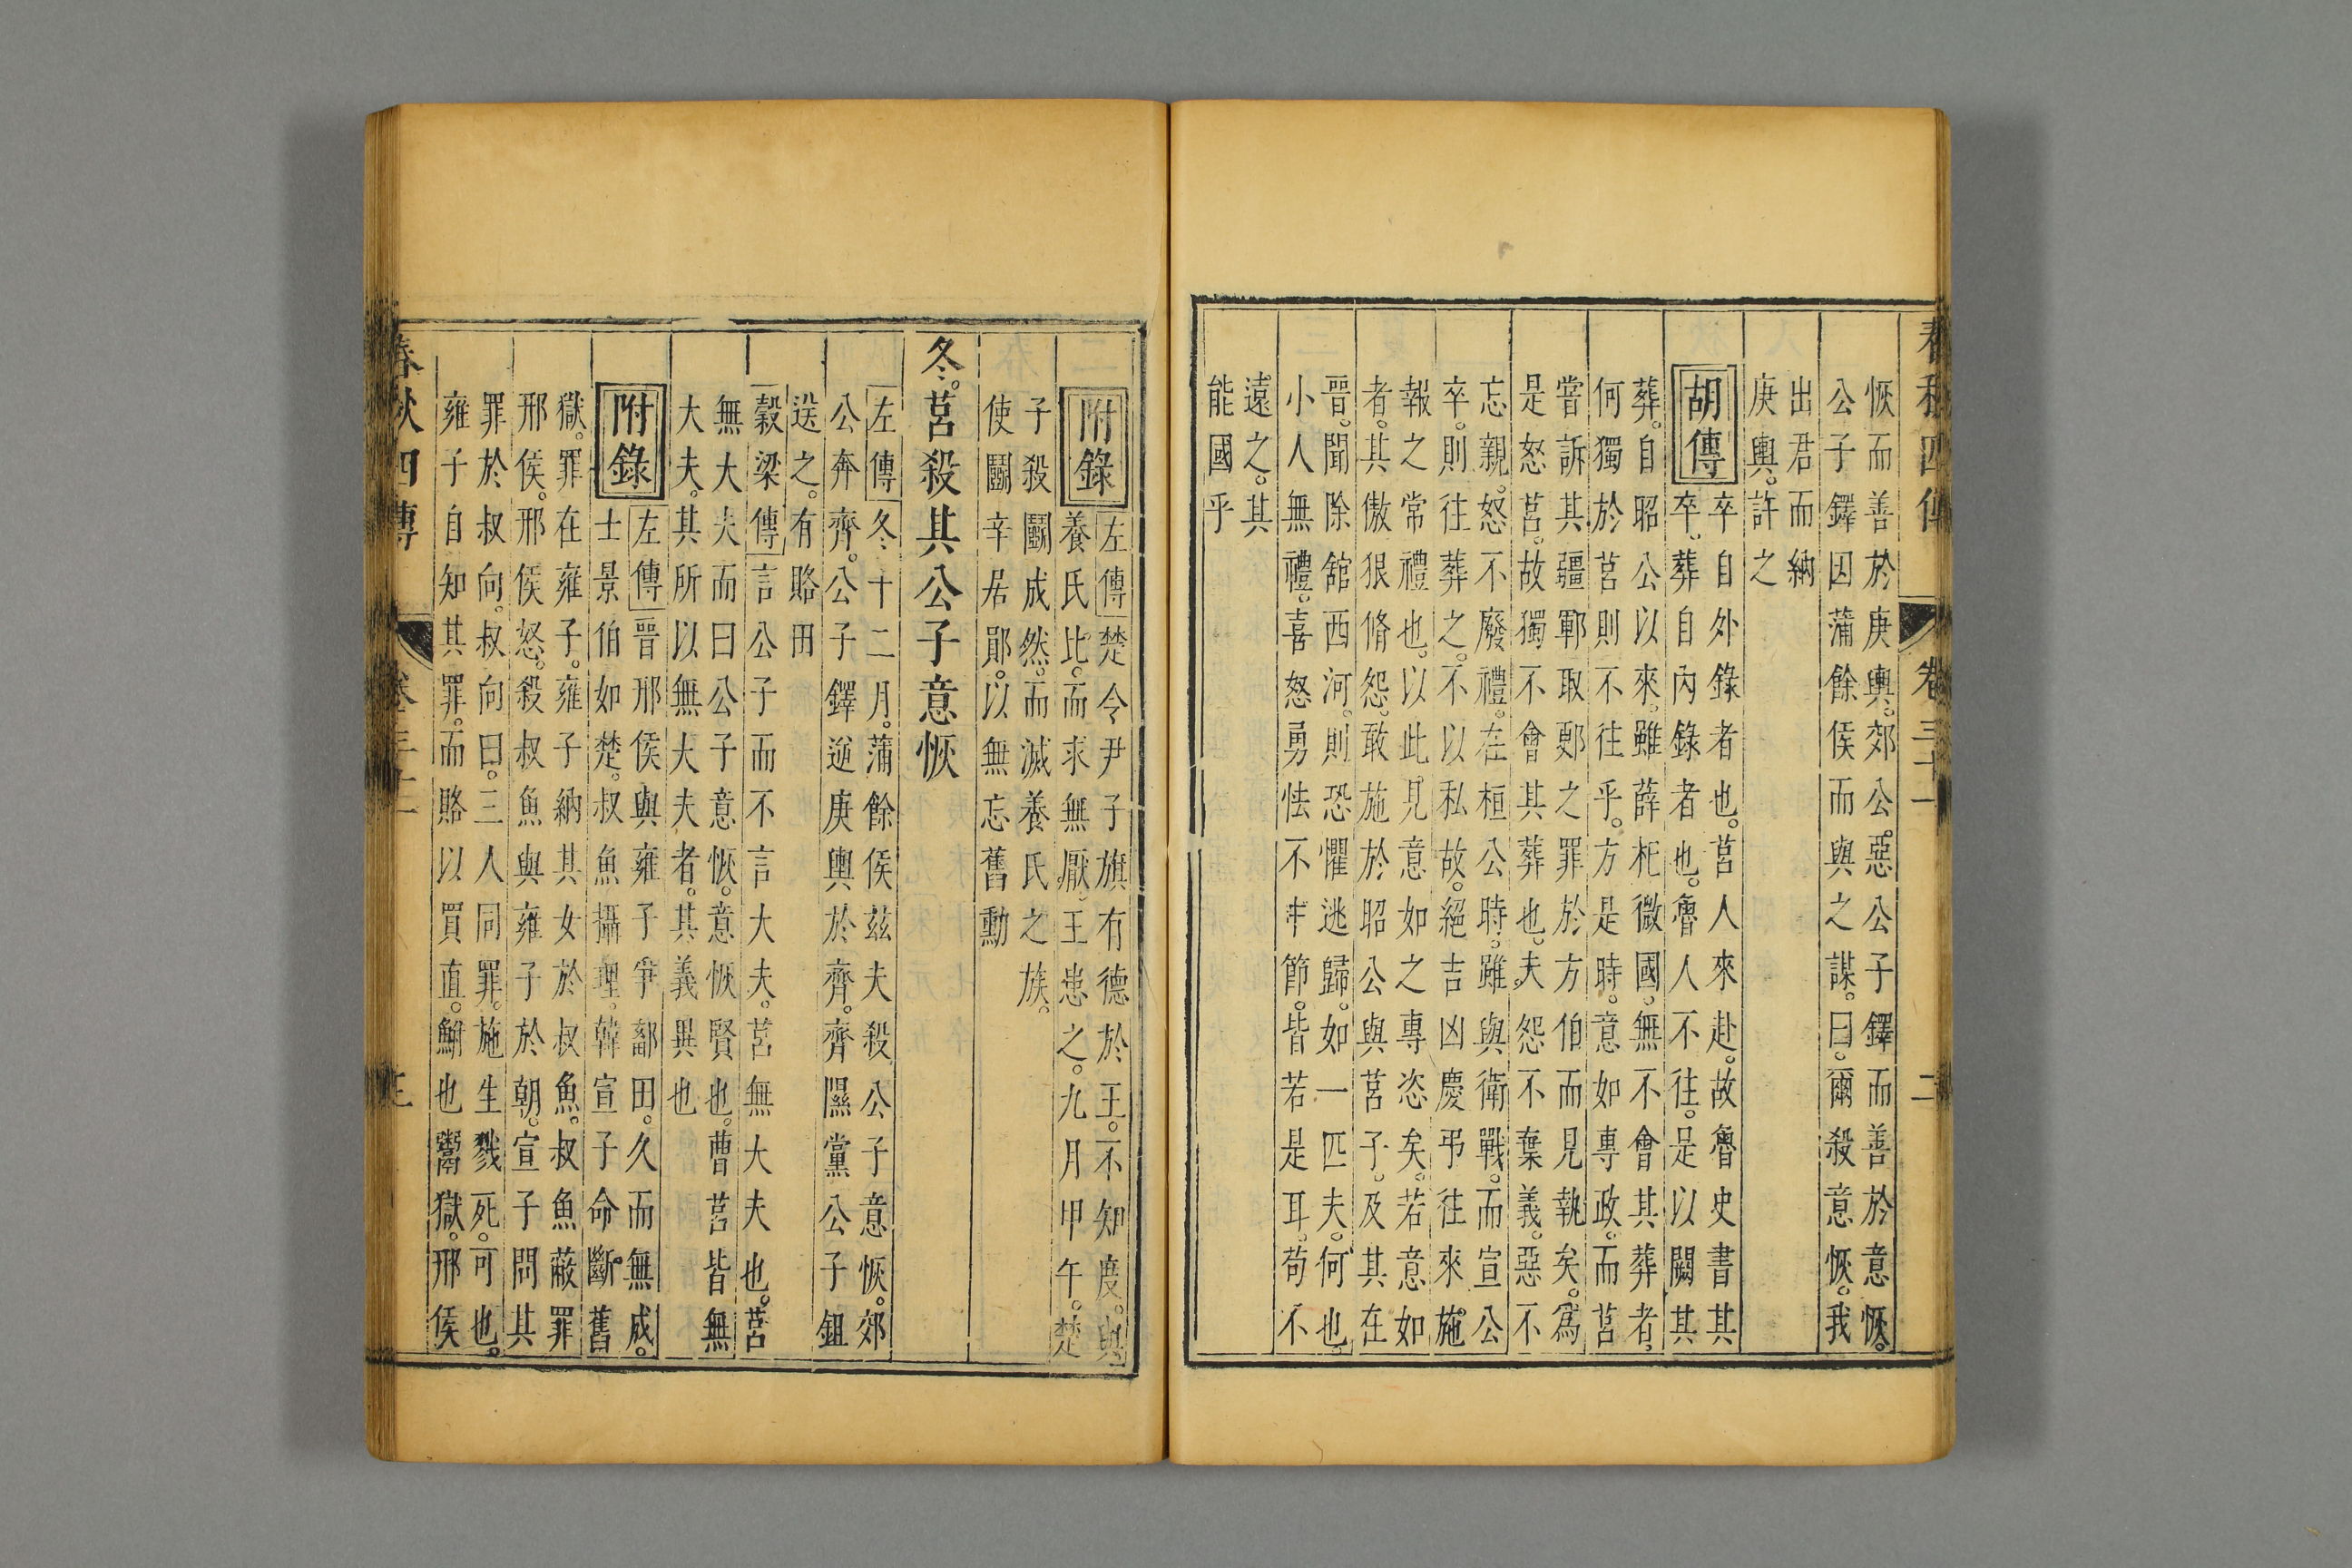 春秋四傳 卷三十一 二
恢而善於庚輿。郊公惡公子鐸而善於意恢。
公子鐸因蒲餘侯而與之謀。曰。爾殺意恢。我
出君而納
庚輿。許之
胡傳 卒自外錄者也。莒人來赴。故魯史書其
卒。葬自內錄者也。魯人不往。是以闕其
葬。自昭公以來。雖薛杞微國。無不會其葬者。
何獨於莒則不往乎。方是時。意如專政。而莒
嘗訴其疆鄆取鄭之罪於方伯而見執矣。爲
是怒莒。故獨不會其葬也。夫怨不棄義。惡不
忘親。怒不廢禮。在桓公時。雖與衛戰。而宣公
卒。則往葬之。不以私故。絕吉凶慶弔往來施
報之常禮也。以此見意如之專恣矣。若意如
者。其傲狠脩怨。敢施於昭公與莒子。及其在
晉。聞除舘西河。則恐懼逃歸。如一匹夫。何也。
小人無禮。喜怒勇怯不中節。皆若是耳。苟不
遠之。其
能國乎
附錄 左傳 楚令尹子旗有德於王。不知度。與
養氏比。而求無厭。王患之。九月甲午。楚
子殺鬬成然。而滅養氏之族。
使鬬辛居鄖。以無忘舊勳
冬。莒殺其公子意恢
左傳 冬十二月。蒲餘侯茲夫殺公子意恢。郊
公奔齊。公子鐸逆庚輿於齊。齊隰黨公子鉏
送之。有賂田
穀梁傳 言公子而不言大夫。莒無大夫也。莒
無大夫而曰公子意恢。意恢賢也。曹莒皆無
大夫。其所以無大夫者。其義異也
附錄 左傳 晉邢侯與雍子爭鄐田。久而無成。
士景伯如楚。叔魚攝理。韓宣子命斷舊
獄。罪在雍子。雍子納其女於叔魚。叔魚蔽罪
邢侯。邢侯怒。殺叔魚與雍子於朝。宣子問其
罪於叔向。叔向曰。三人同罪。施生戮死。可也。
雍子自知其罪。而賂以買直。鮒也鬻獄。邢侯
春秋四傳 卷三十一 三